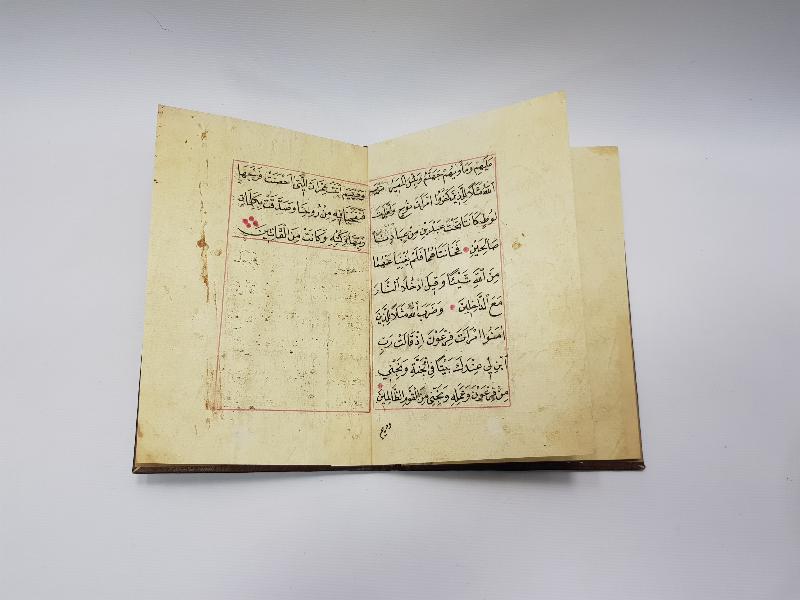 عَلَيْهِمْ وَمَأْوٰيهُمْ جَهَنَّمُ وَبِئْسَ الْمَصِيرُ ضَرَبَ
اللّٰهُ مَثَلًا لِلَّذِينَ كَفَرُوا امْرَأَتَ نُوحٍ وَامْرَأَتَ
لُوطٍ كَانَتَا تَحْتَ عَبْدَيْنِ مِنْ عِبَادِنَا
صَالِحَيْنِ فَخَانَتَاهُمَا فَلَمْ يُغْنِيَا عَنْهُمَا
مِنَ اللّٰهِ شَيْئًا وَقِيلَ ادْخُلَا النَّارَ
مَعَ الدَّاخِلِينَ وَضَرَبَ اللّٰهُ مَثَلًا لِلَّذِينَ
اٰمَنُوا امْرَأَتَ فِرْعَوْنَ إِذْ قَالَتْ رَبِّ
ابْنِ لِي عِنْدَكَ بَيْتًا فِي الْجَنَّةِ وَنَجِّنِي
مِنْ فِرْعَوْنَ وَعَمَلِهِ وَنَجِّنِي مِنَ الْقَوْمِ الظَّالِمِينَ
ومريم
وَمَرْيَمَ ابْنَتَ عِمْرَانَ الَّتِي أَحْصَنَتْ فَرْجَهَا
فَنَفَخْنَا فِيهِ مِنْ رُوحِنَا وَصَدَّقَتْ بِكَلِمَاتِ
رَبِّهَا وَكُتُبِهِ وَكَانَتْ مِنَ الْقَانِتِينَ